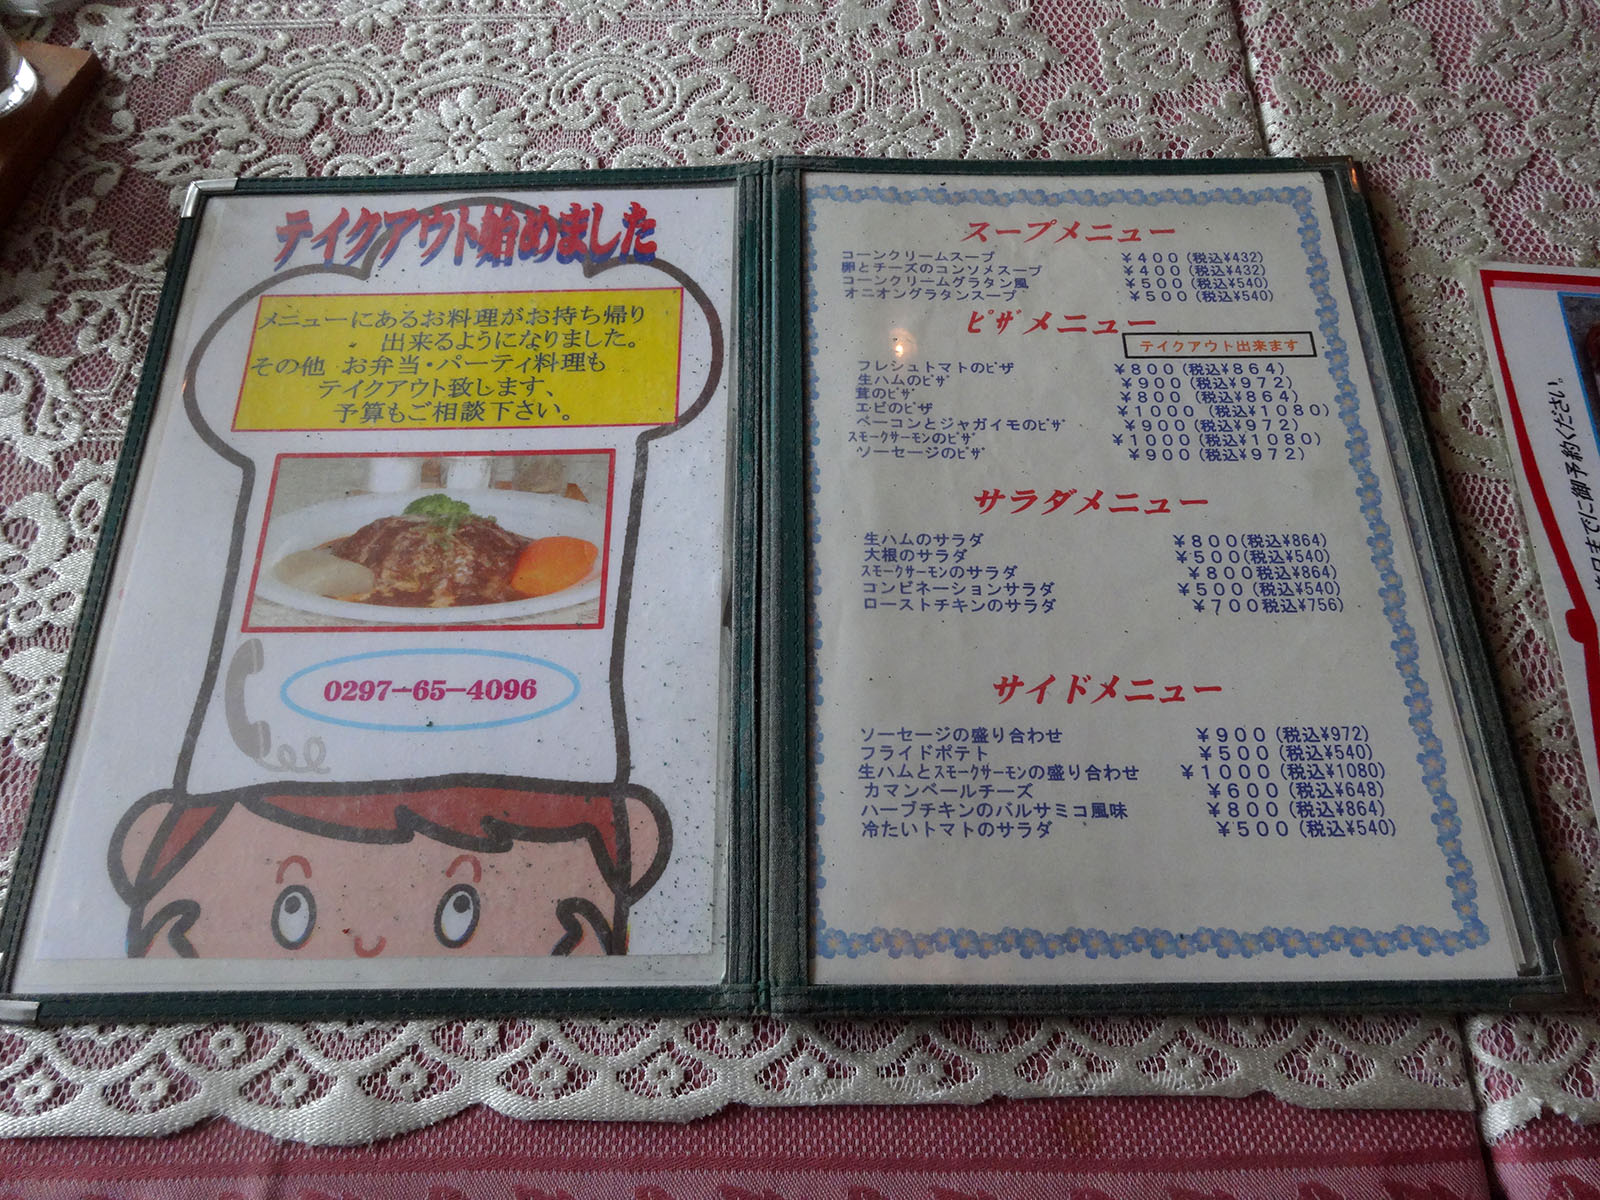 テイクアウト始めました
メニューにあるお料理がお持ち帰り
出来るようになりました。
その他 お弁当・パーティ料理も
テイクアウト致します、
予算もご相談下さい。
0297-65-4096
スープメニュー
コーンクリームスープ ¥400(税込¥432)
卵とチーズのコンソメスープ ¥400(税込¥432)
コーンクリームグラタン風 ¥500(税込¥540)
オニオングラタンスープ ¥500(税込¥540)
ピザメニュー
テイクアウト出来ます
フレシュトマトのピザ ¥800(税込¥864)
生ハムのピザ ¥900(税込¥972)
茸のピザ ¥800(税込¥864)
エビのピザ ¥1000(税込¥1080)
ベーコンとジャガイモのピザ ¥900(税込¥972)
スモークサーモンのピザ ¥1000(税込¥1080)
ソーセージのピザ ¥900(税込¥972)
サラダメニュー
生ハムのサラダ ¥800(税込¥864)
大根のサラダ ¥500(税込¥540)
スモークサーモンのサラダ ¥800税込¥864)
コンビネーションサラダ ¥500(税込¥540)
ローストチキンのサラダ ¥700税込¥756)
サイドメニュー
ソーセージの盛り合わせ ¥900(税込¥972)
フライドポテト ¥500(税込¥540)
生ハムとスモークサーモンの盛り合わせ ¥1000(税込¥1080)
カマンベールチーズ ¥600(税込¥648)
ハーブチキンのバルサミコ風味 ¥800(税込¥864)
冷たいトマトのサラダ ¥500(税込¥540)
までに御予約ください。